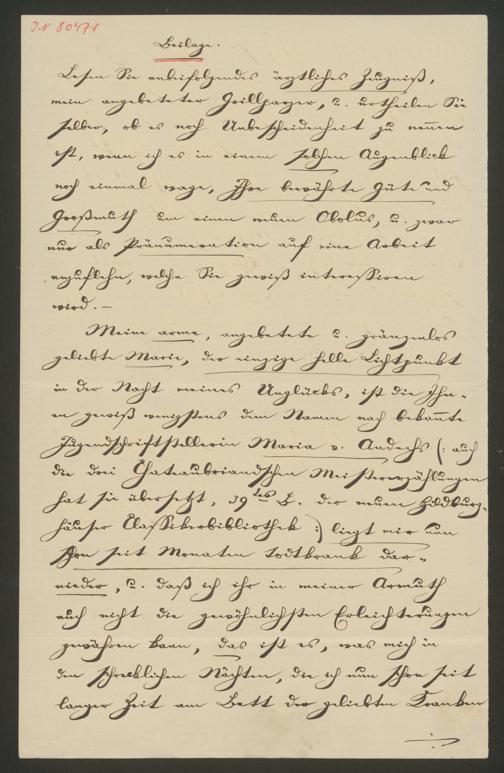 JN 80471
Beilage.
Lesen Sie anbeifolgendes ärztliches Zeugniß,
mein angebeteter Grillparzer, u. urtheilen Sie
selber, ob es noch Unbescheidenheit zu nennen
ist, wenn ich es in einem solchen Augenblick
noch einmal wage, Ihre bewährte Güte und
Großmuth um einen neuen Obolus, u. zwar
nur als Pränumeration auf eine Arbeit
anzuflehn, welche Sie gewiß interessiren
wird. –
Meine arme, angebetete u. gränzenlos
geliebte Marie, der einzige helle Lichtpunkt
in der Nacht meines Unglücks, ist die Ihn-
en gewiß wenigstens dem Namen nach bekannte
Jugendschriftstellerin Maria v. Andechs (: auch
die drei Chateaubriandschen Meistererzählungen
hat sie übersetzt, 39tes B. der neuen Hildburg-
häuser Classikerbibliothek :) liegt mir nun
schon seit Monaten todtkrank dar-
nieder, u. daß ich ihr in meiner Armuth
auch nicht die gewöhnlichsten Erleichterungen
gewähren kann, das ist es, was mich in
den schrecklichen Nächten, die ich nun schon seit
langer Zeit am Bett der geliebten Kranken